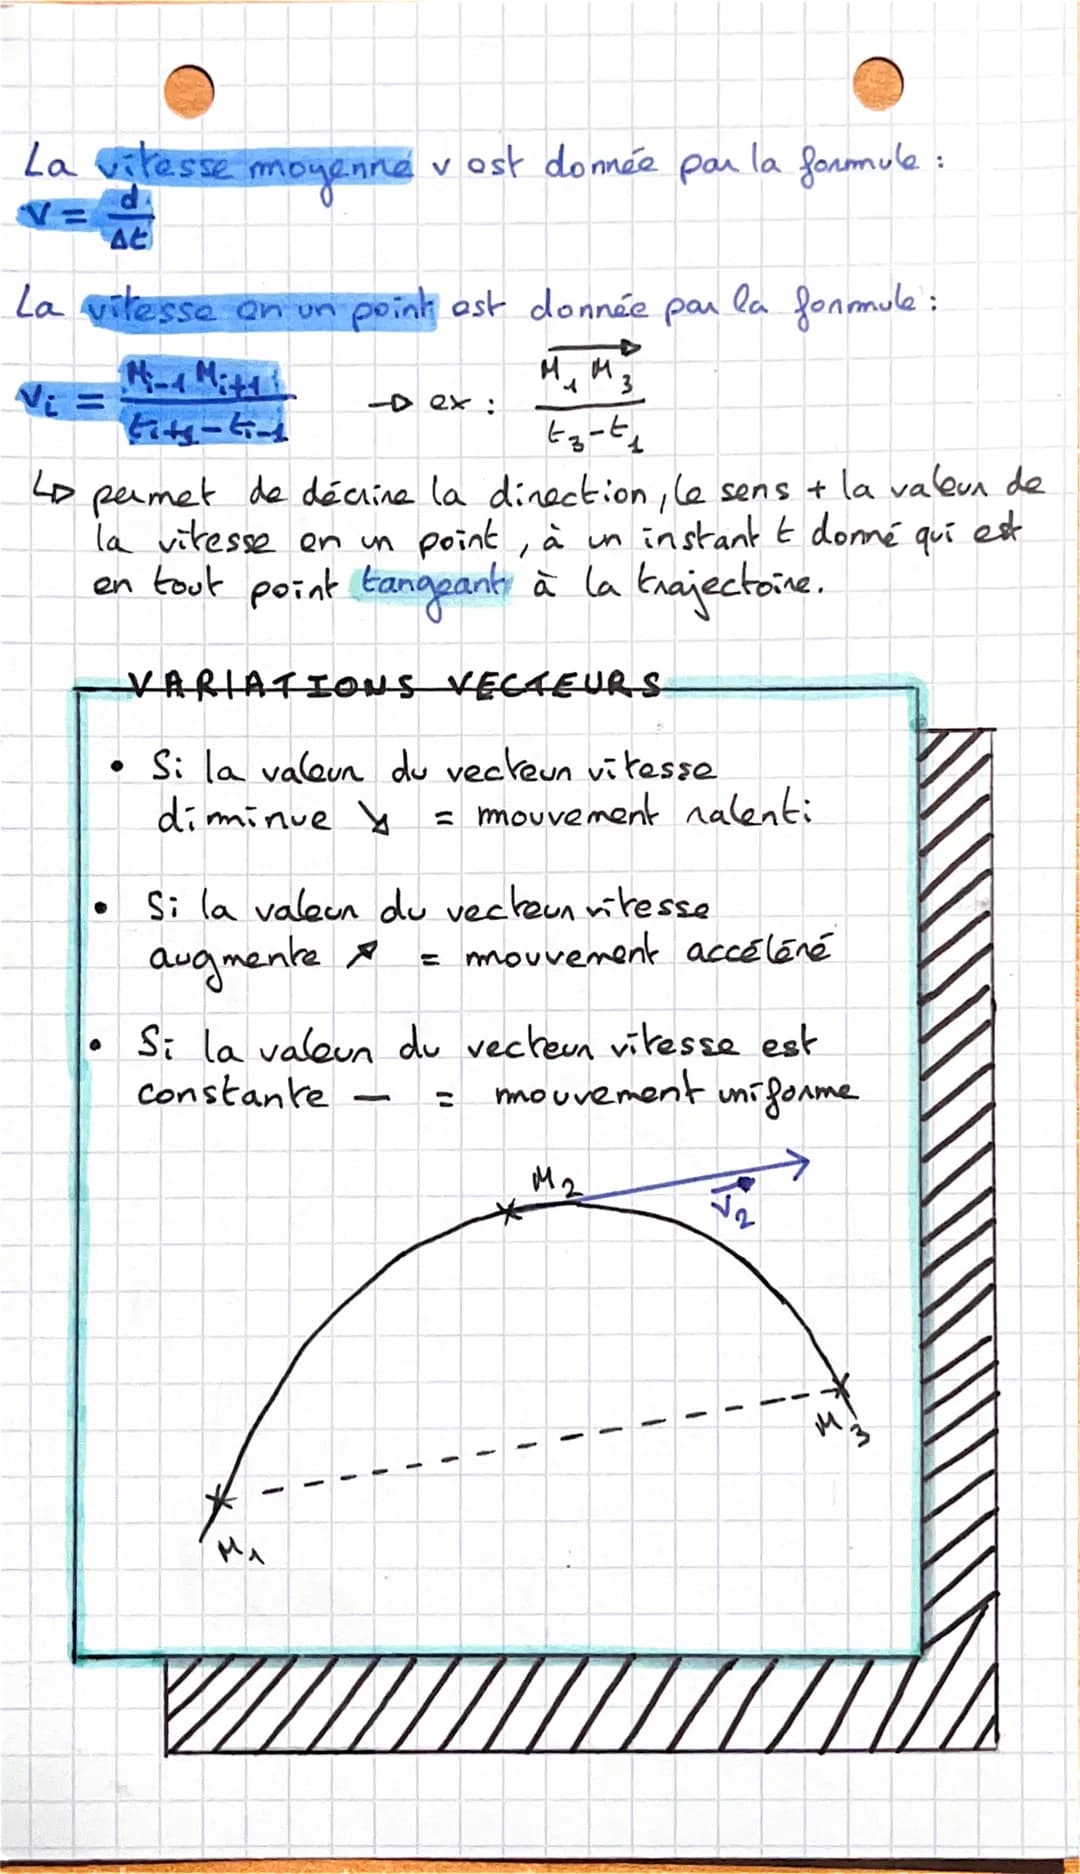 La vitesse moyenne v est donnée par la formule :
v = d/Δt
La vitesse en un point est donnée par la formule :
vi = Mi-1 Mi+1 / ti+1 - ti-1 → ex : M1 M3 / t3 - t1
↳ permet de décrire la direction, le sens + la valeur de
la vitesse en un point, à un instant t donné qui est
en tout point tangeant à la trajectoire.
VARIATIONS VECTEURS
• Si la valeur du vecteur vitesse
diminue ↘ = mouvement ralenti
• Si la valeur du vecteur vitesse
augmente ↗ = mouvement accéléré
• Si la valeur du vecteur vitesse est
constante — = mouvement uniforme
M2
v2
M3
M1